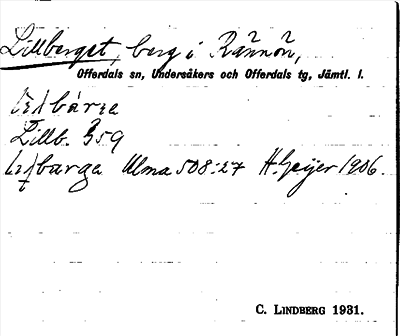 Lillberget, berg i Rännön,
Offerdals sn, Undersåkers och Offerdals tg, Jämtl. l.
Lillb. 359
Ulma 508:27 H. Geijer 1906.
C. LINDBERG 1931.